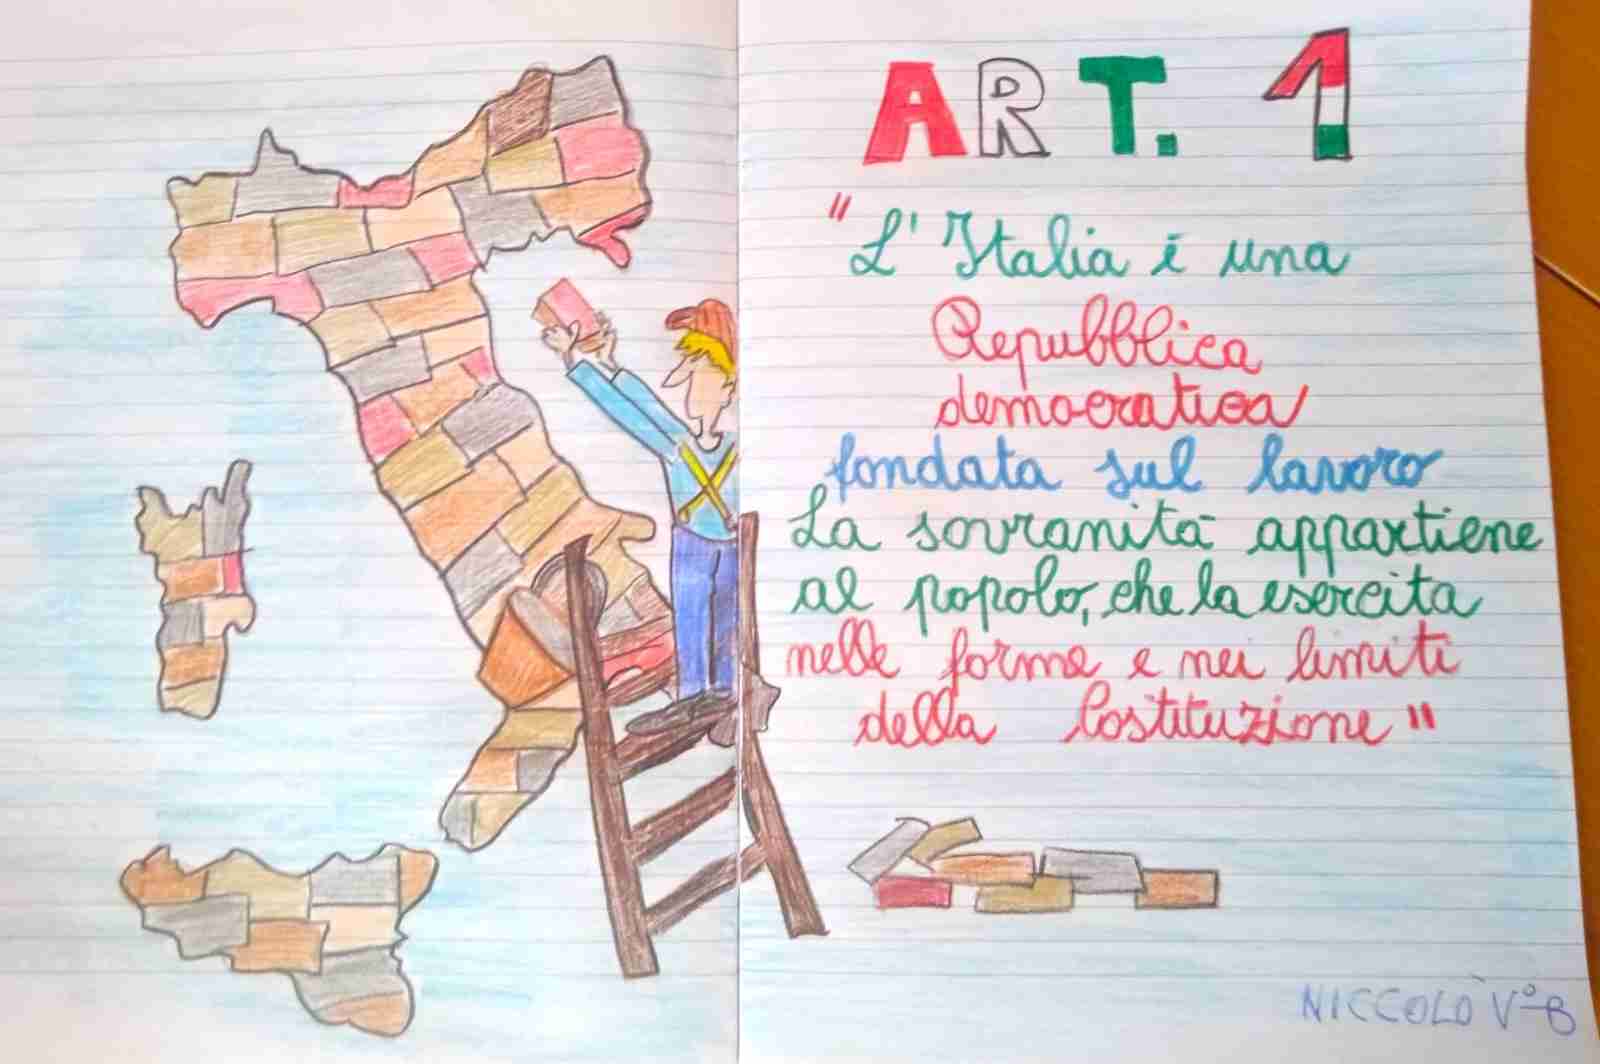 ART. 1
"L'Italia è una
Repubblica
democratica
fondata sul lavoro
La sovranità appartiene
al popolo, che la esercita
nelle forme e nei limiti
della Costituzione"
NICCOLÒ V°B